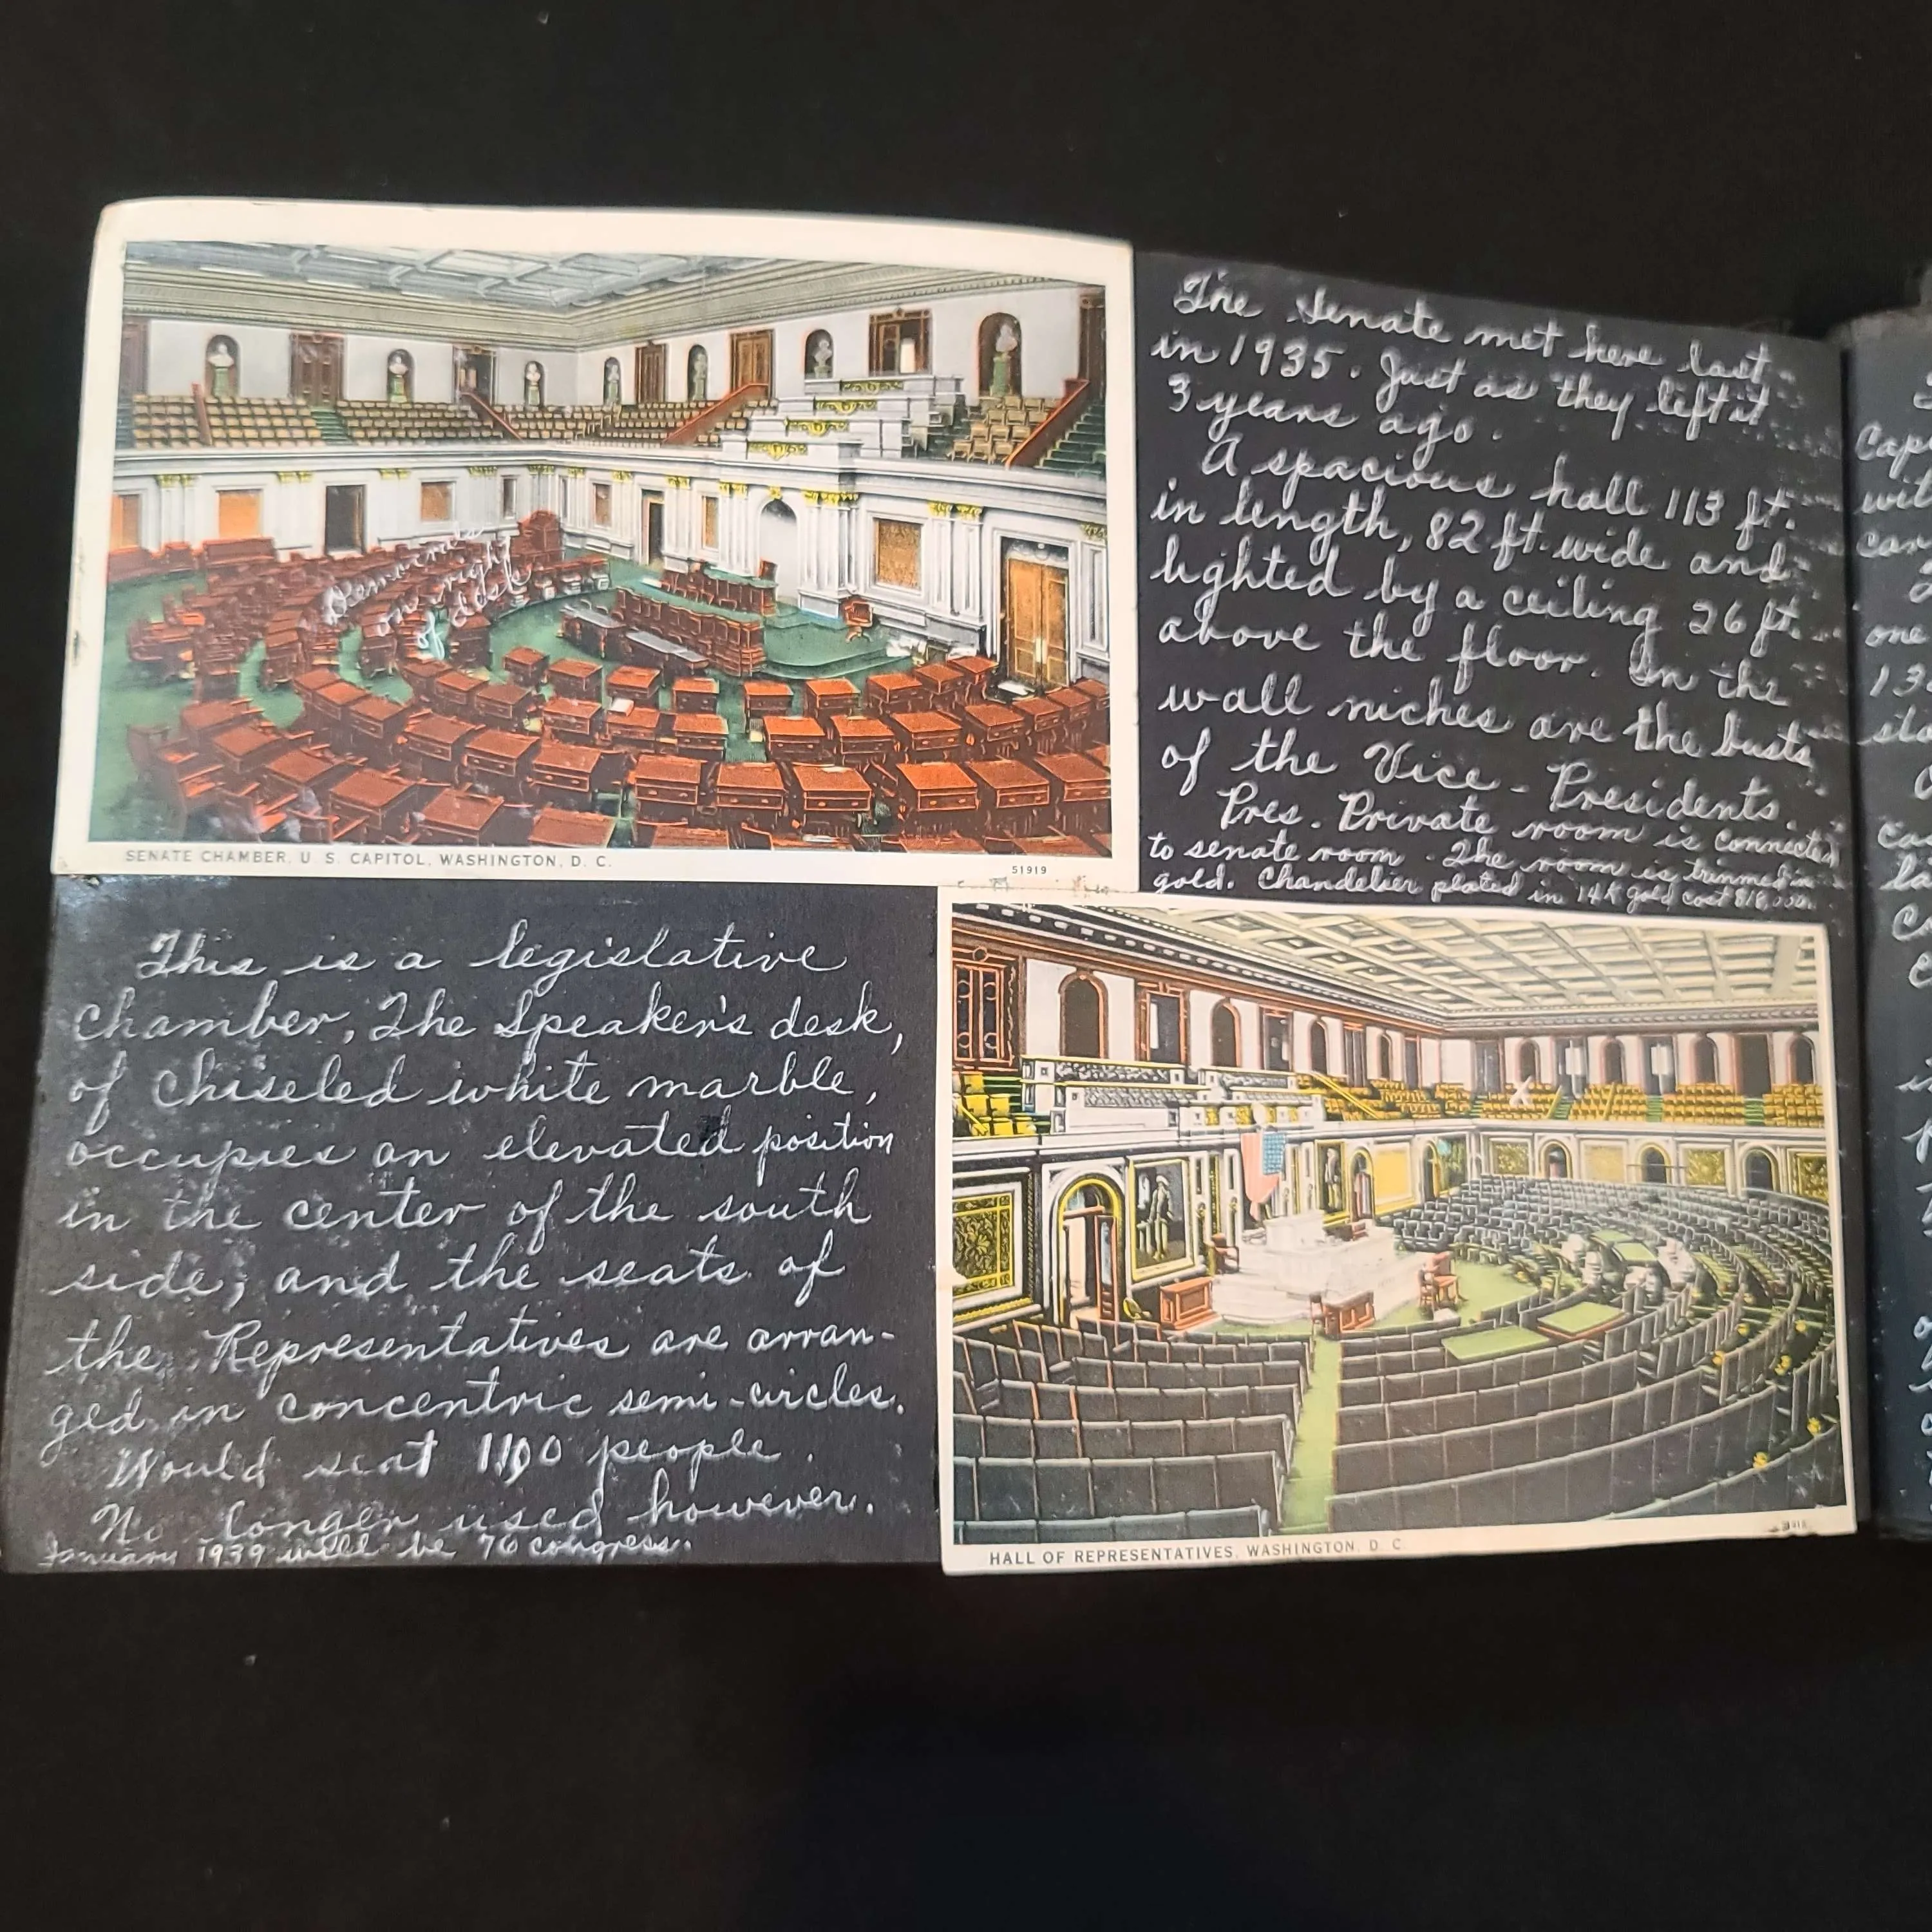 The Senate met here last
in 1935. Just as they left it
3 years ago.
A spacious hall 113 ft.
in length, 82 ft. wide and
lighted by a ceiling 26 ft.
above the floor. In the
wall niches are the busts
of the Vice-Presidents.
Pres. Private room is connected
to senate room. The room is trimmed in
gold. Chandelier plated in 14K gold cost
Democrats
on right
of desk
SENATE CHAMBER, U. S. CAPITOL, WASHINGTON, D. C.
51919
This is a legislative
chamber, The Speaker's desk,
of chiseled white marble,
occupies an elevated position
in the center of the south
side, and the seats of
the Representatives are arran-
ged in concentric semi-circles.
Would seat 1100 people.
No longer used however.
January 1939 will be 76 congress.
X
HALL OF REPRESENTATIVES, WASHINGTON, D. C.
one